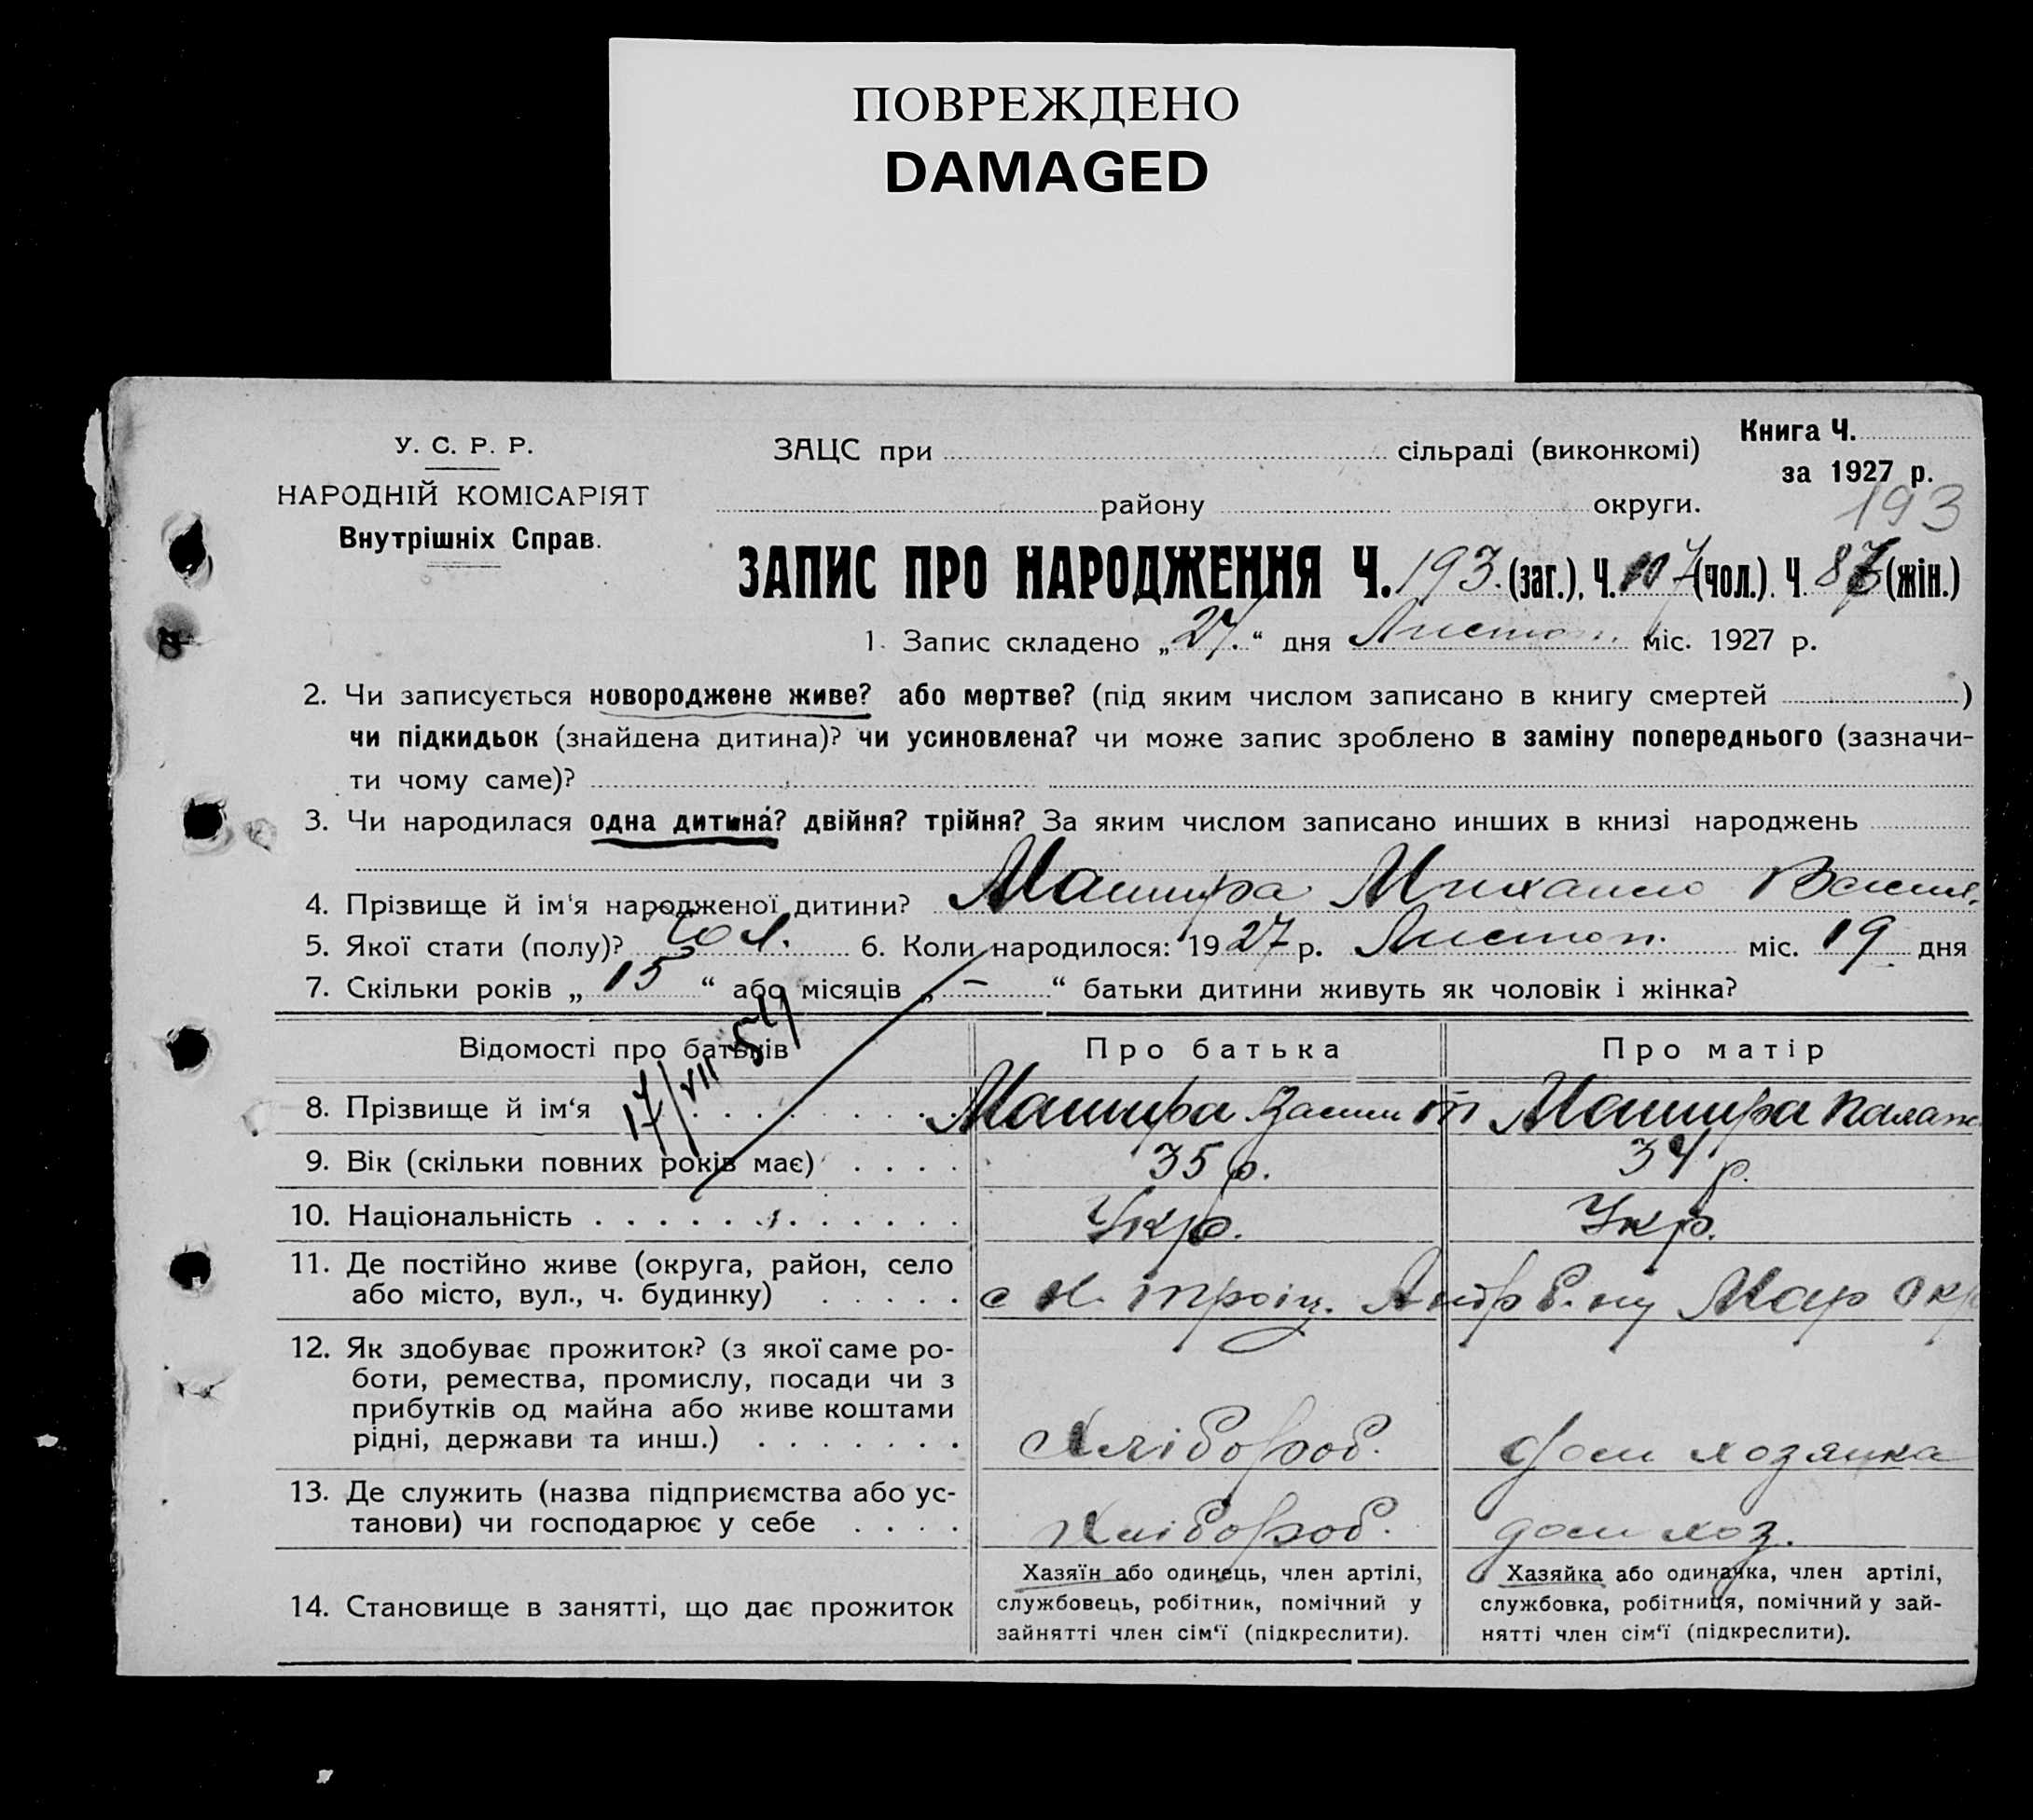 ПОВРЕЖДЕНО
DAMAGED
У. С. Р. Р.
НАРОДНІЙ КОМІСАРІЯТ
Внутрішніх Справ.
ЗАЦС при сільраді (виконкомі)
району округи.
Книга Ч.
за 1927 р.
193
ЗАПИС ПРО НАРОДЖЕННЯ Ч. 193. (заг.), Ч. 107 (чол.). Ч. 87 (жін.)
1. Запис складено „27.“ дня Листоп. міс. 1927 р.
2. Чи записується новороджене живе? або мертве? (під яким числом записано в книгу смертей )
чи підкидьок (знайдена дитина)? чи усиновлена? чи може запис зроблено в заміну попереднього (зазначи-
ти чому саме)?
3. Чи народилася одна дитина? двійня? трійня? За яким числом записано инших в книзі народжень
4. Прізвище й ім'я народженої дитини? Машура Михаило Васил.
5. Якої стати (полу)? Чол. 6. Коли народилося: 1927 р. Листоп. міс. 19 дня
7. Скільки років „15“ або місяців „—“ батьки дитини живуть як чоловік і жінка?
17/VII 54
Відомості про батьків Про батька Про матір
8. Прізвище й ім‘я Машура Машура Палаж
9. Вік (скільки повних років має) 35 р. 34 р.
10. Національність Укр. Укр.
11. Де постійно живе (округа, район, село
або місто, вул., ч. будинку) с Н. троіц. Мар окр
12. Як здобуває прожиток? (з якої саме ро-
боти, ремества, промислу, посади чи з
прибутків од майна або живе коштами
рідні, держави та инш.) Хлібороб. дом хозяйка
13. Де служить (назва підприємства або ус-
танови) чи господарює у себе Хлібороб. дом хоз.
14. Становище в занятті, що дає прожиток
Хазяїн або одинець, член артілі,
службовець, робітник, помічний у
зайнятті член сім‘ї (підкреслити).
Хазяйка або одиначка, член артілі,
службовка, робітниця, помічний у зай-
нятті член сім‘ї (підкреслити).